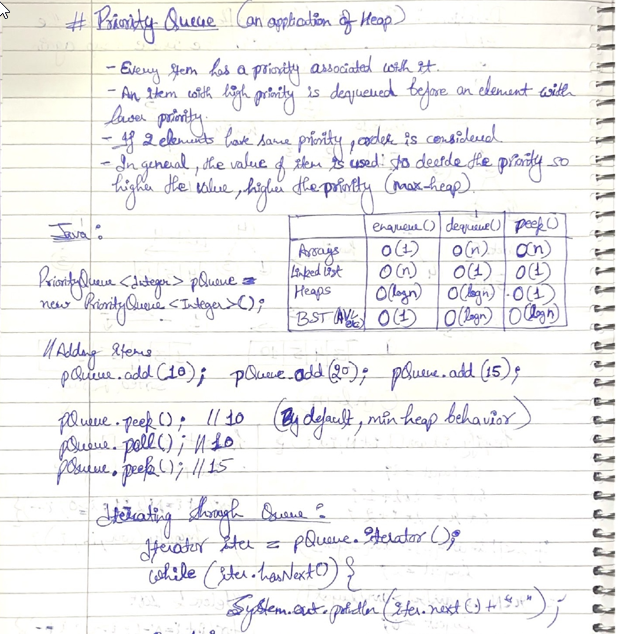 # Priority Queue (an application of Heap)
- Every item has a priority associated with it.
- An item with high priority is dequeued before an element with
lower priority.
- If 2 elements have same priority, order is considered
- In general, the value of item is used to decide the priority so
higher the value, higher the priority (max-heap).
Java :
enqueue() dequeue() peek()
Arrays O(1) O(n) O(n)
Linked List O(n) O(1) O(1)
Heaps O(logn) O(logn) O(1)
BST (AVL O(1) O(logn) O(logn)
PriorityQueue <Integer> pQueue =
new PriorityQueue <Integer>();
// Adding items
pQueue.add(10); pQueue.add(20); pQueue.add(15);
pQueue.peek(); // 10 (By default, min heap behavior)
pQueue.poll(); // 10
pQueue.peek(); // 15
Iterating through Queue :
Iterator iter = pQueue.iterator();
while (iter.hasNext()) {
System.out.println(iter.next() + " ");